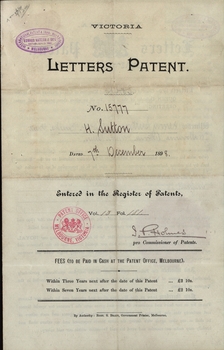 VICTORIA
LETTERS PATENT.
No. 15777
H. Sutton
DATED 7th December 1898
Entered in the Register of Patents,
VOL. FOL.
PATENT OFFICE
MELBOURNE, VICTORIA
per Commissioner of Patents.
FEES (TO BE PAID IN CASH AT THE PATENT OFFICE, MELBOURNE).
Within Three Years next after the date of this Patent ... £2 10s.
Within Seven Years next after the date of this Patent ... £2 10s.
By Authority: Robt. S. Brain, Government Printer, Melbourne.